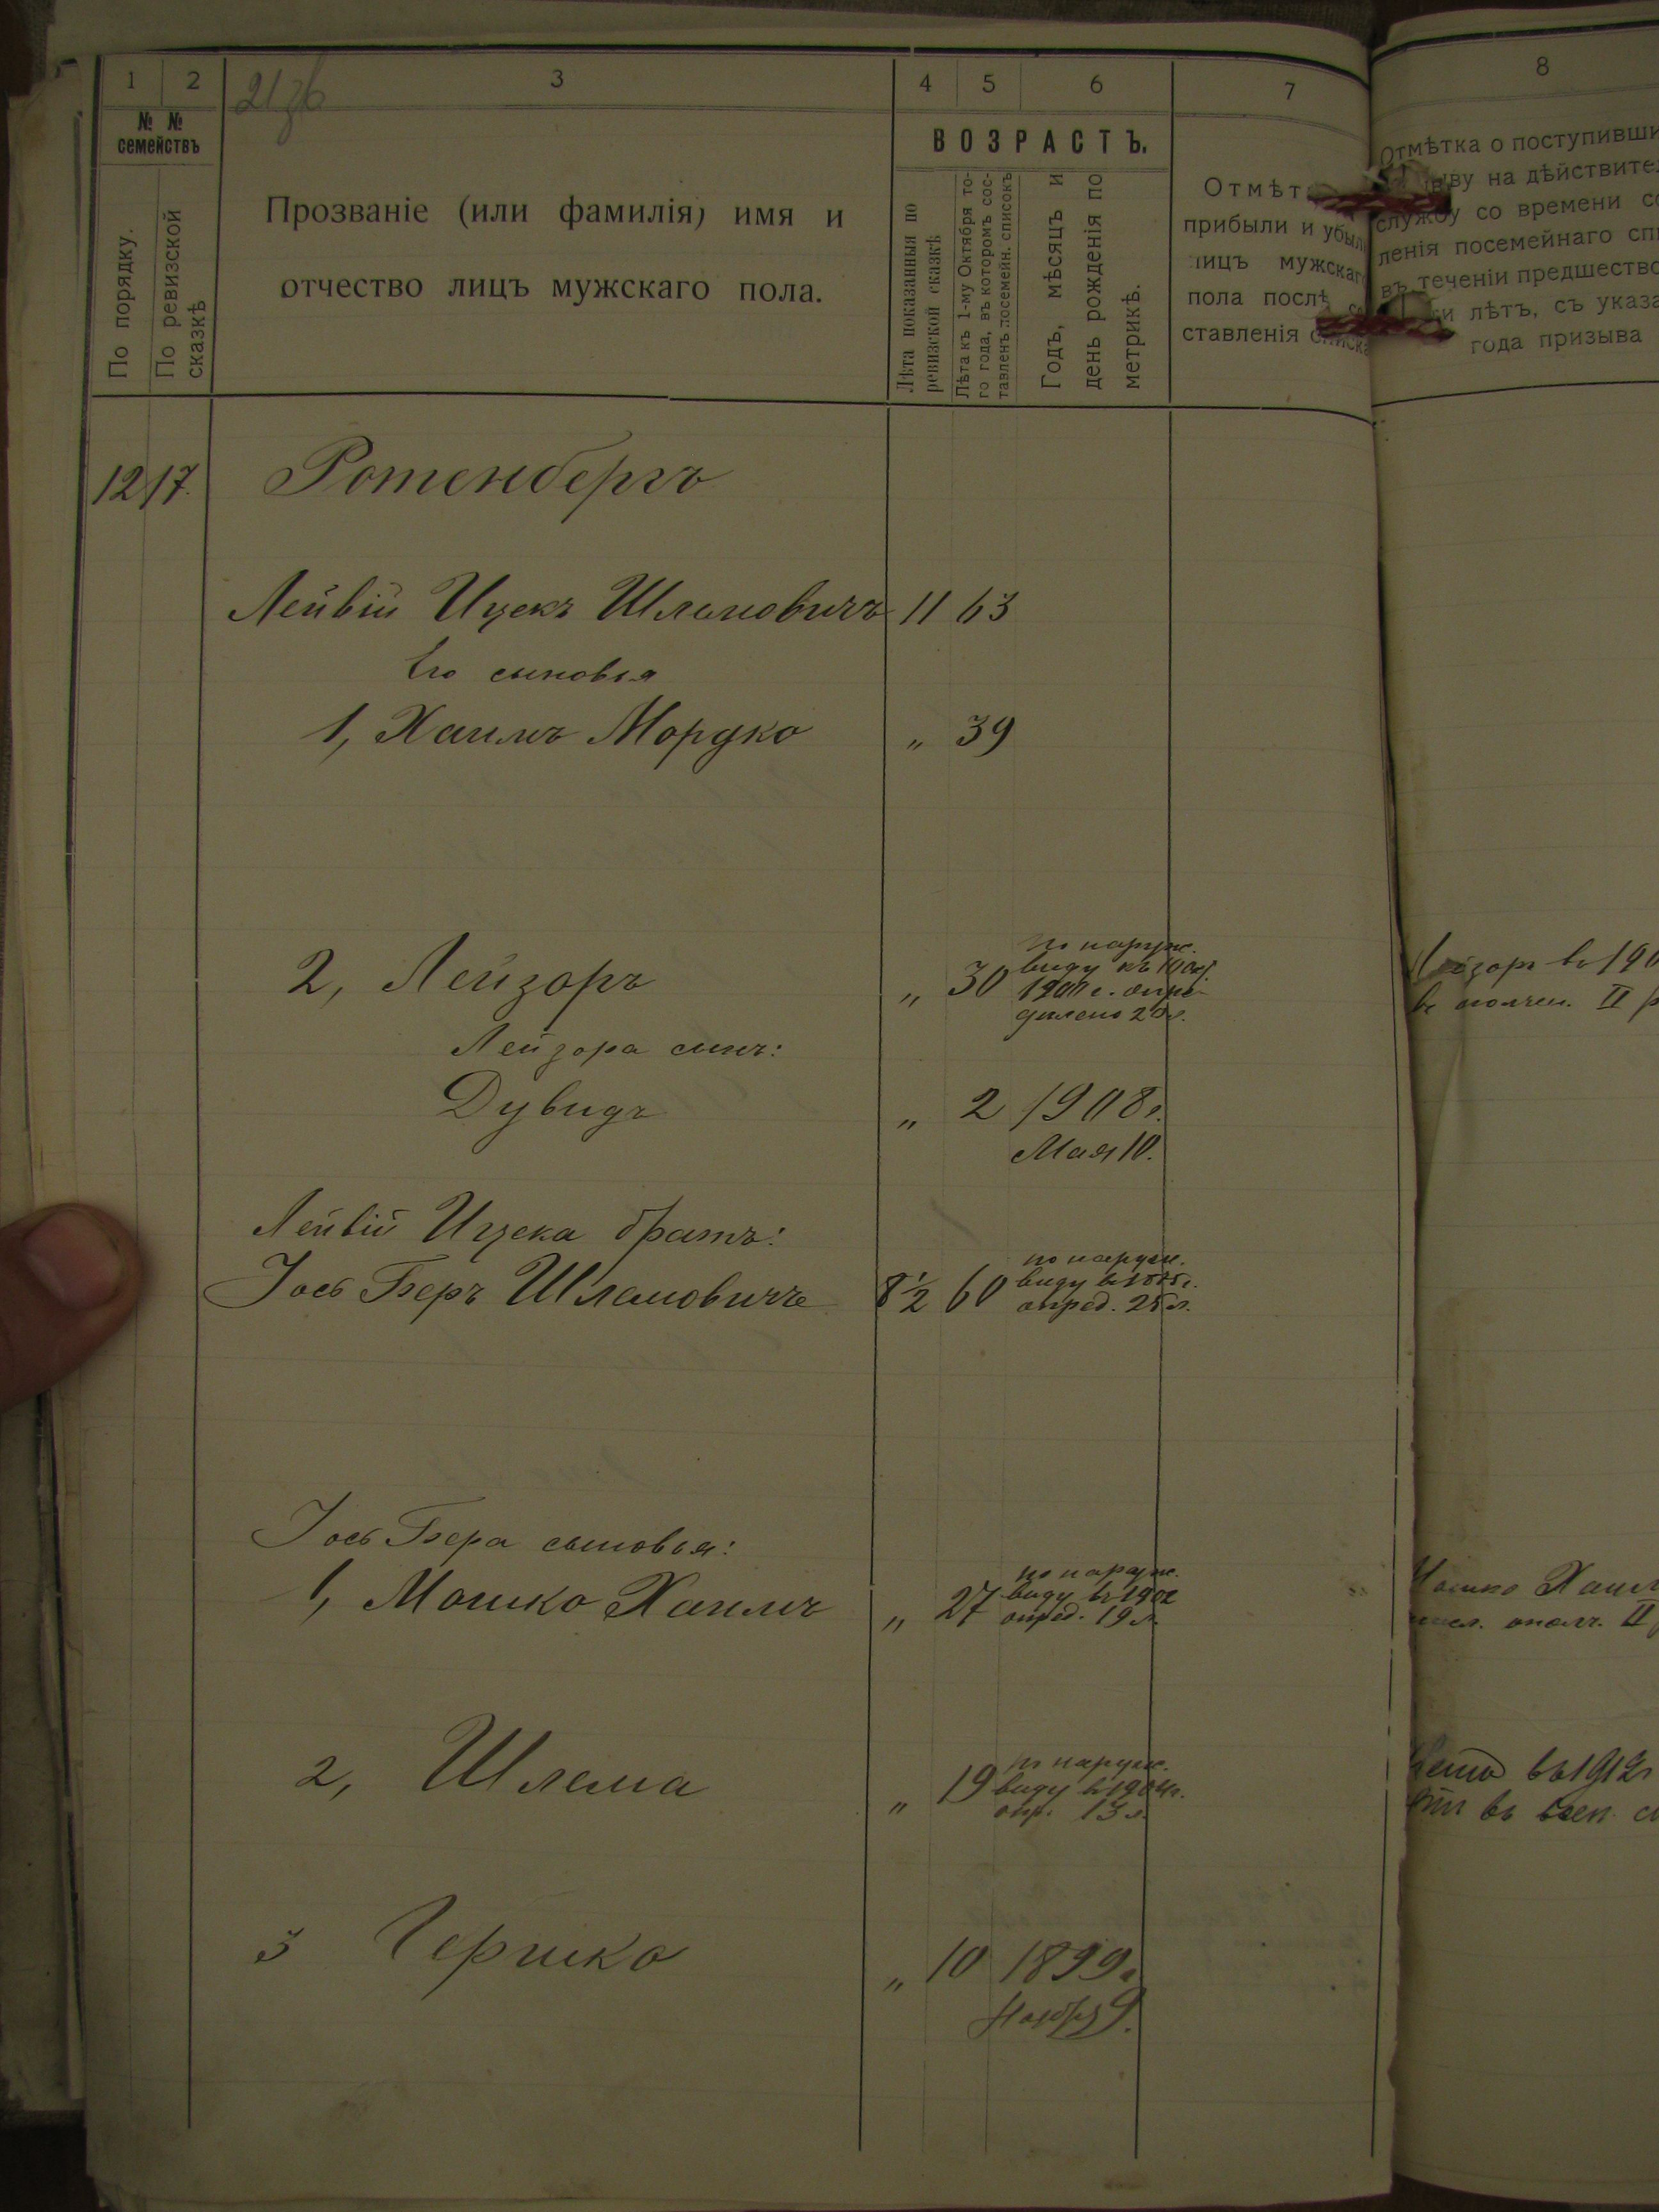 1 2 3 4 5 6 7 8
21
№ № семействъ
По порядку.
По ревизской сказкѣ
Прозваніе (или фамилія) имя и
отчество лицъ мужскаго пола.
ВОЗРАСТЪ.
Лѣта показанныя по
ревизской сказкѣ
Лѣта къ 1-му Октября то-
го года, въ которомъ сос-
тавленъ посемейн. списокъ
Годъ, мѣсяцъ и
день рожденія по
метрикѣ.
Отмѣт
прибыли и убыли
лицъ мужскаго
пола послѣ со
ставленія списка
Отмѣтка о поступивши
ыву на дѣйствите
службу со времени со
ленія посемейнаго спи
въ теченіи предшество
ти лѣтъ, съ указа
года призыва
12 17. Ротенбергъ
Лейвій Ицекъ Шлемовичъ 11 63
Его сыновья
1, Хаимъ Мордко „ 39
по наруж.
2, Лейзоръ „ 30 виду къ 1 Окт.
1901 г. опре-
дѣлено 20 л.
Лейзора сынъ:
Дувидъ „ 2 1908 г.
Мая 10.
Лейвій Ицека братъ:
по наруж.
Іось Беръ Шлемовичъ 8½ 60 виду въ 1875 г.
опред. 25 л.
Іось Бера сыновья:
по наруж.
1, Мошко Хаимъ „ 27 виду въ 1902
опред. 19 л.
по наруж.
2, Шлема „ 19 виду въ 1904 г.
опр. 13 л.
3 Гершко „ 10 1899 г.
Ноября 9.
Лейзоръ въ 190
въ ополчен. II р
Мошко Хаим
ополч. II
въ 1912 г
въ воен. с